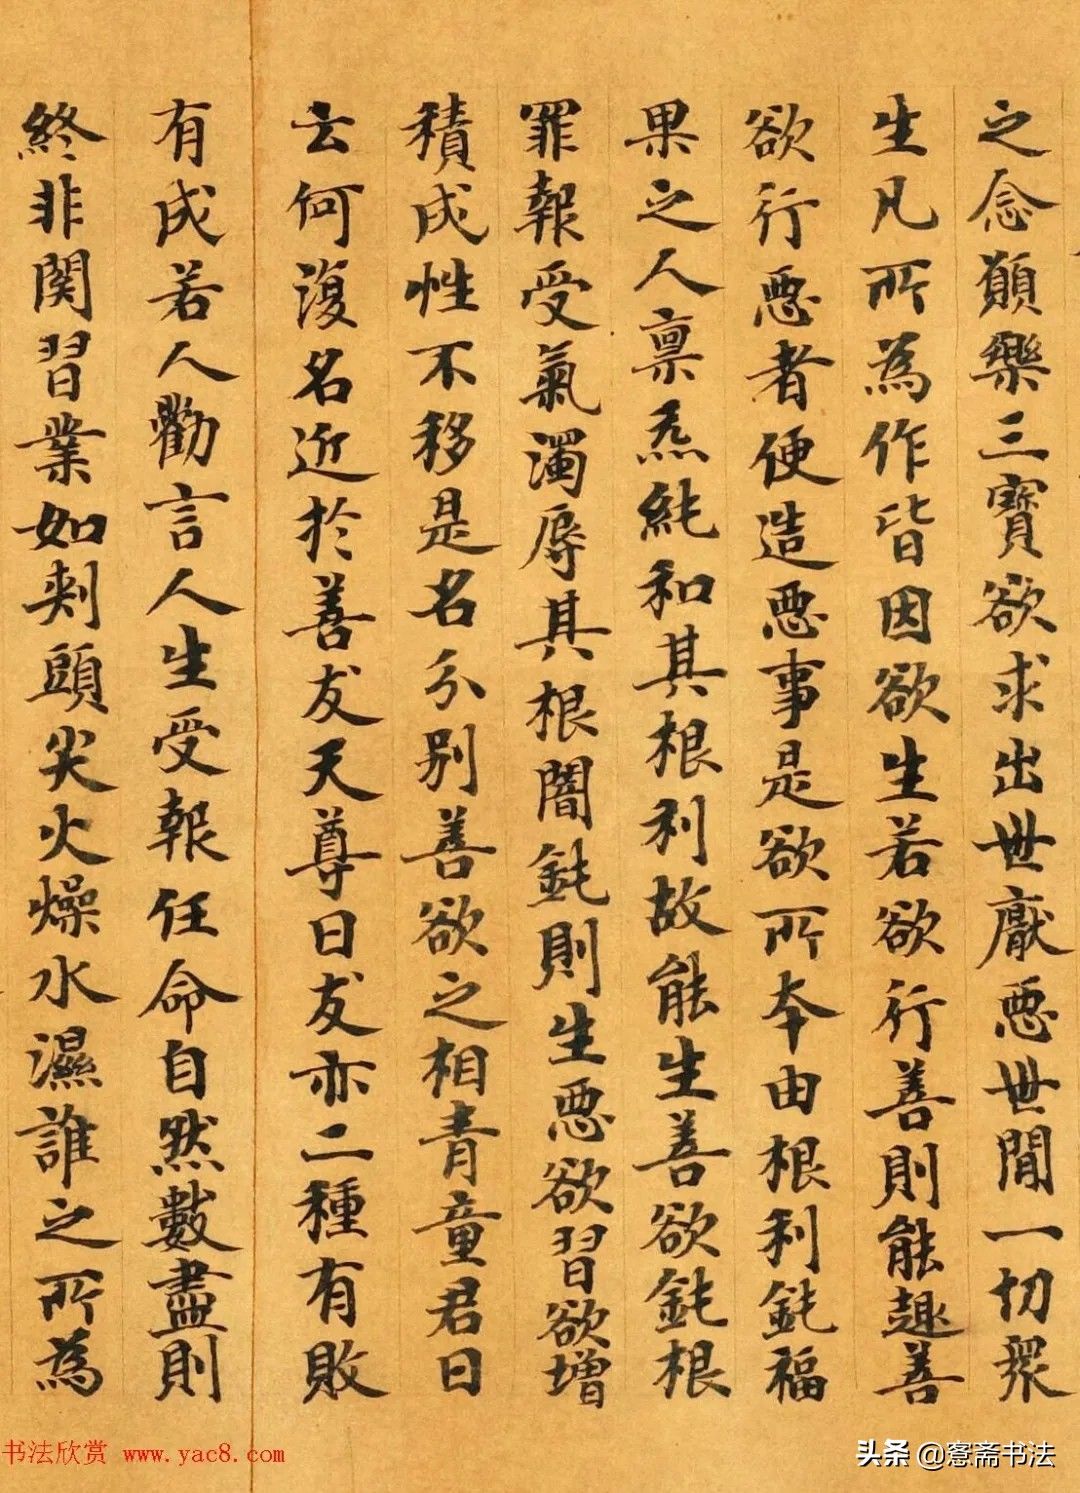 之念願樂三寶欲求出世厭惡世間一切衆
生凡所為作皆因欲生若欲行善則能趣善
欲行惡者便造惡事是欲所本由根利鈍福
果之人禀炁純和其根利故能生善欲鈍根
罪報受氣濁辱其根闇鈍則生惡欲習欲增
積成性不移是名分别善欲之相青童君曰
云何復名近於善友天尊曰友亦二種有敗
有成若人勸言人生受報任命自然數盡則
終非関習業如刾頭尖火燥水濕誰之所為
书法欣赏 www.yac8.com
头条 @窓斋书法